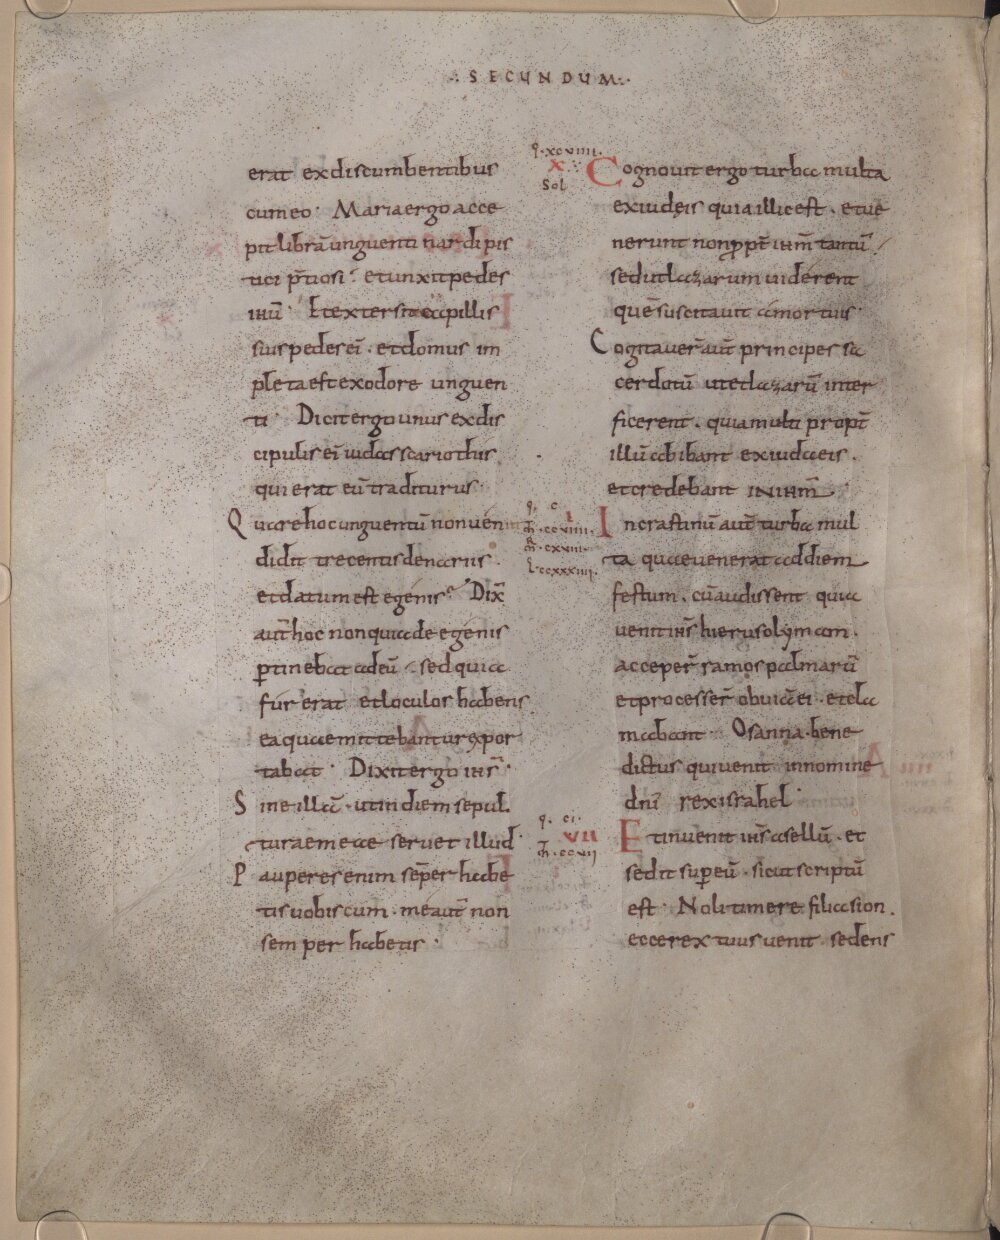 ·:SECUNDUM:·
erat ex discumbentibus
cum eo· Maria ergo acce
pit librā unguenti nardi pis
tici p̄tiosi· et unxit pedes
ihū· Et extersit capillis
suis pedes eī· et domus im
pleta est ex odore unguen
ti· Dicit ergo unus ex dis
cipulis eī iudas scariothis·
qui erat eū traditurus·
Quare hoc unguentū non ven
didit trecentis denariis·
et datum est egenis· Dix̄
aut̄ hoc non quia de egenis
ꝑtinebat ad eū· sed quia
fur erat et loculos habens
ea quae mittebantur expor
tabat· Dixit ergo ihs̄·
Sine illā· ut in diem sepul
turae meae servet illud·
Pauperes enim sēper habe
tis vobiscum· me aut̄ non
semper habetis·
q·xcviiii·
x·:
Sol
Cognovit ergo turba multa
ex iudęis quia illic est· et ve
nerunt non ꝓpt̄ ihm̄ tantū
sed ut lazarum viderent
quē suscitavit a mortuis·
Cogitaver̄ aut̄ principes sa
cerdotū ut et lazarū inter
ficerent· quia multi propt̄
illū abibant ex iudaeis·
et credebant IN IHM̄
q· c
i
m̄·ccviiii·
m̄r·cxviii·
l·ccxxxiiii·
In crastinū aut̄ turba mul
ta quae venerat ad diem
festum· cū audissent quia
venit ihs̄ hierusolymam·
acceper̄ ramos palmarū
et processer̄ obviā ei· et cla
mabant· Osanna· bene
dictus qui venit in nomine
dnī rex israhel·
q· ci·
vii
m̄·ccvii
Et invenit ihs̄ asellū· et
sedit sup̄ eū· sicut scriptū
est· Noli timere filia sion·
ecce rex tuus venit sedens